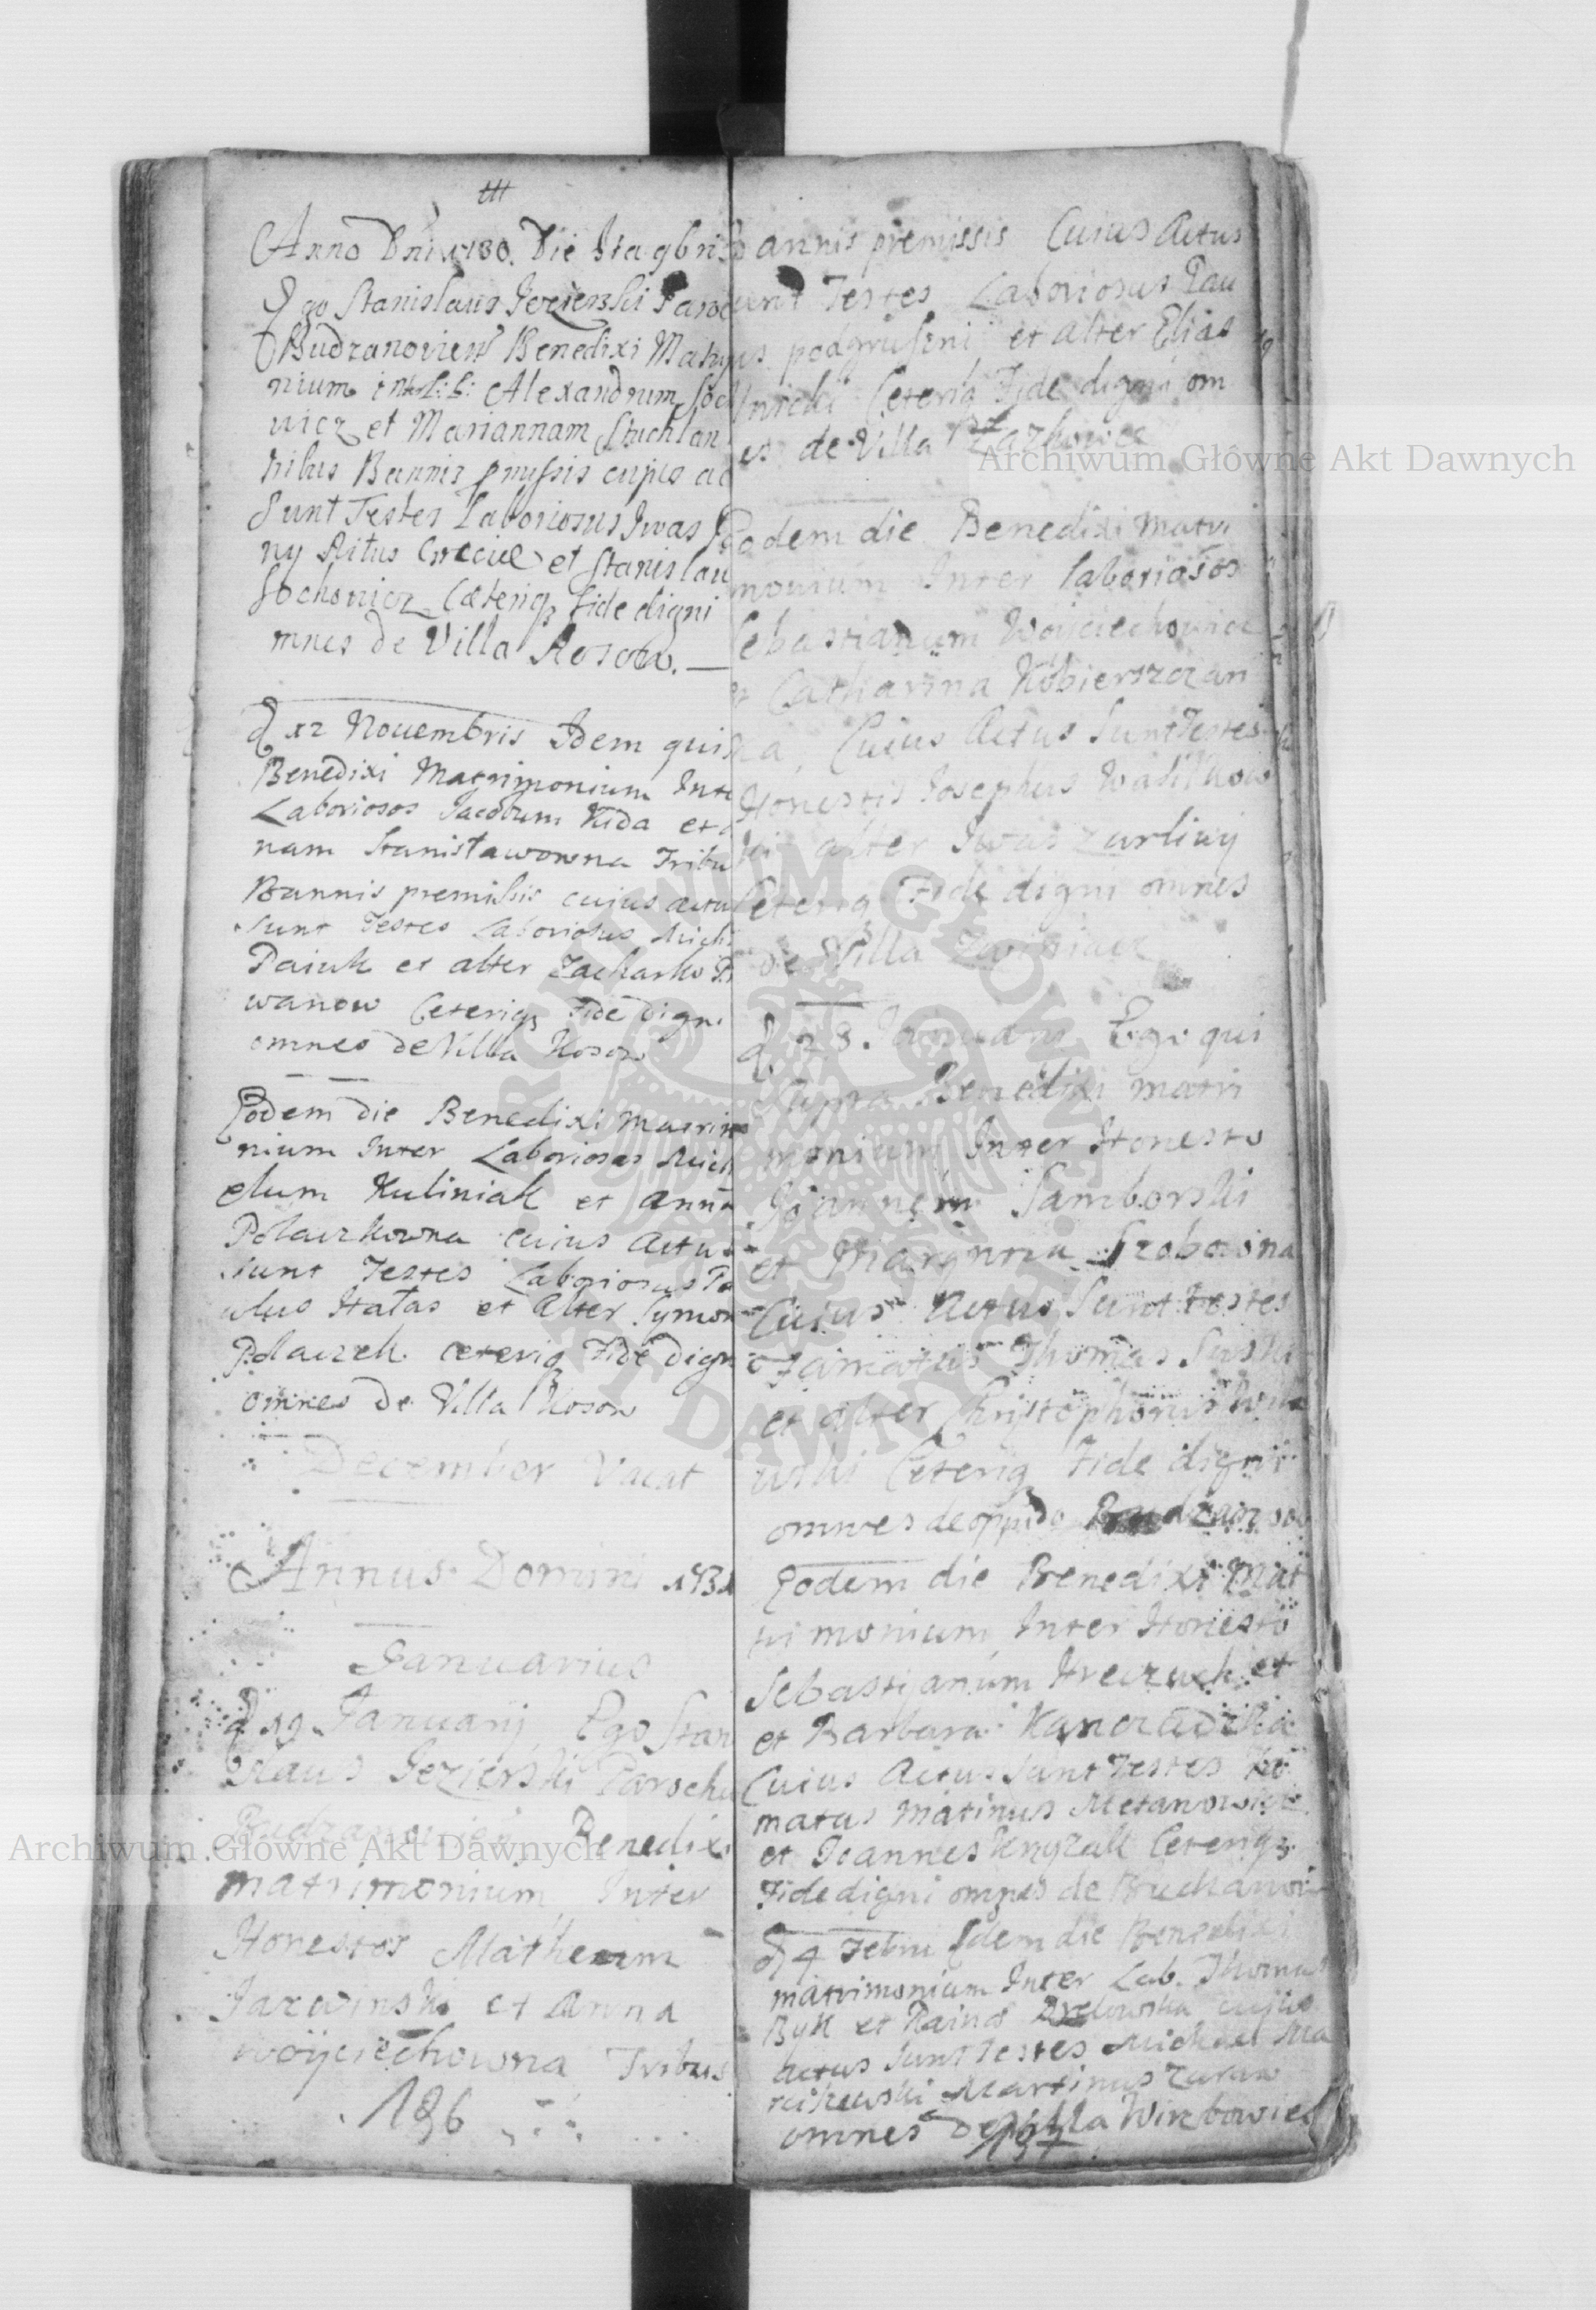 Anno Dni 1730. Die Ita 9bris
Ego Stanislaus Jezierski Paroc
Budzanovien Benedixi Matrym
nium inter L: L: Alexandrum Soc
wicz et Mariannam Stuchlan
tribus Bannis pmissis cujus ac
Sunt Testes Laboriosus Iwas
ny Ritus Greciae et Stanislau
Sochowicz Caeteriq fide digni
mnes de Villa Kosow.
d 12 Novembris Idem qui S
Benedixi Matrimonium Inte
Laboriosos Jacobum Kida et
nam Stanisławowna Tribu
Bannis premissis cuius actu
Sunt Testes Laboriosus Mich
Paiuk et alter Zacharko
wanow Ceteriq Fide Digni
omnes de Villa Kosow
Eodem die Benedixi Matrimo
nium Inter Laboriosos Mich
elum Kuliniak et Anna
Polaczkowna cuius Actus
sunt Testes Laboriosus Pa
ulus Hałas et Alter Symon
Polaczek ceteriq Fide Digni
omnes de Villa Kosow
December Vacat
Annus Domini 1731
Januarius
d 19 Januarij Ego Stani
slaus Jezierski Parochu
Benedixi
matrimonium Inter
Honestos Matheum
Jarowinski et Anna
Woyciechowna Tribus
196
annis premissis Cuius Actus
unt Testes Laboriosus Pau
us podgruszni et alter Elias
lnicki Ceteriq Fide digni om
es de Villa
Eodem die Benedixi Matri
monium Inter laboriosos
Sebastianum Woyciechowicz
et Catharina Kobierszczan
ka, Cuius Actus Sunt Testes
Honestus Josephus Wasilkow
ski alter Iwas Zurliwy
Ceteriq Fide digni omnes
de Villa Zwiniacz
d 28. Januarij Ego qui
Supra Benedixi matri
monium Inter Honesto
Joannem Samborski
et
Cuius Actus Sunt Testes
Famatus Thomas Suski
et alter Christophorus
wski Ceteriq Fide digni
omnes de oppido Budzanow
Eodem die Benedixi Mat
rimonium Inter Honesto
Sebastjanum Hreczuch et
et Barbara
Cuius Actus Sunt Testes Fa
matus Matinus Metanowicz
et Joannes Ceteriq
Fide digni omnes de
d 4 Febru Idem die Benedixi
matrimonium Inter Lab. Thomas
Byk et Raina cujus
actus Sunt Testes Michael Ma
rcikewski Martinus Zuraw
omnes de Villa Wirzbowiec
197
Archiwum Główne Akt Dawnych
Archiwum Główne Akt Dawnych
ARCHIWUM GŁÓWNE AKT DAWNYCH